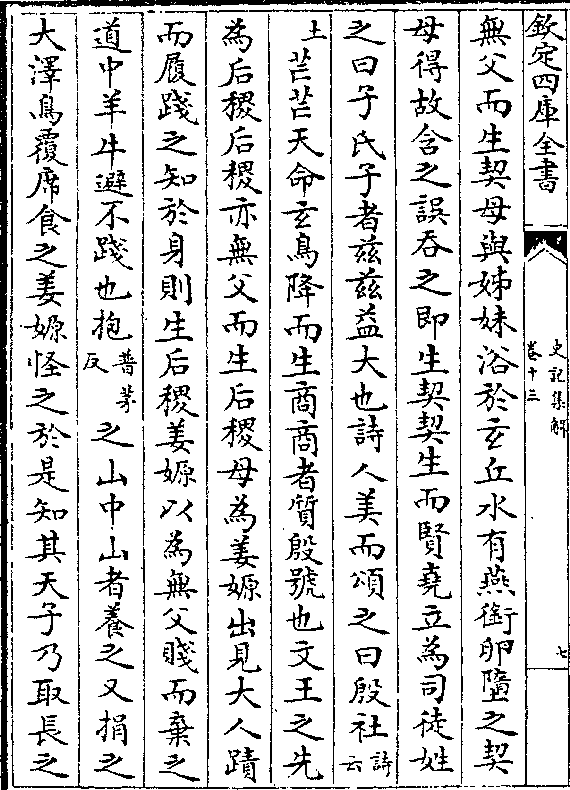 欽定四庫全書
史記集解
卷十三
七
無父而生契母與姊妹浴於玄丘水有燕銜卵墮之契
母得故含之誤吞之即生契契生而賢堯立為司徒姓
之曰子氏子者兹兹益大也詩人美而頌之曰殷社詩云
土芒芒天命玄鳥降而生商商者質殷號也文王之先
為后稷后稷亦無父而生后稷母為姜嫄出見大人蹟
而履踐之知於身則生后稷姜嫄以為無父賤而棄之
道中羊牛避不踐也抱普茅反之山中山者養之又捐之
大澤鳥覆席食之姜嫄怪之於是知其天子乃取長之